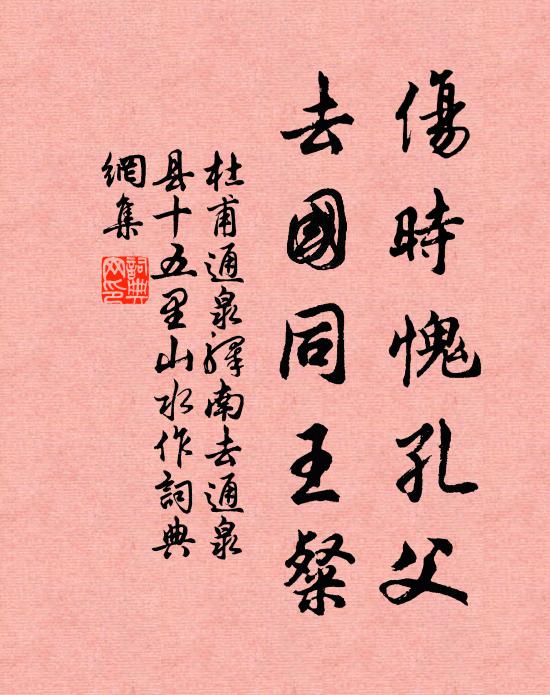 傷時愧孔父
去國同王粲
杜甫通泉驛南去通泉
县十五里山水作詞典
網集
詞典
网印